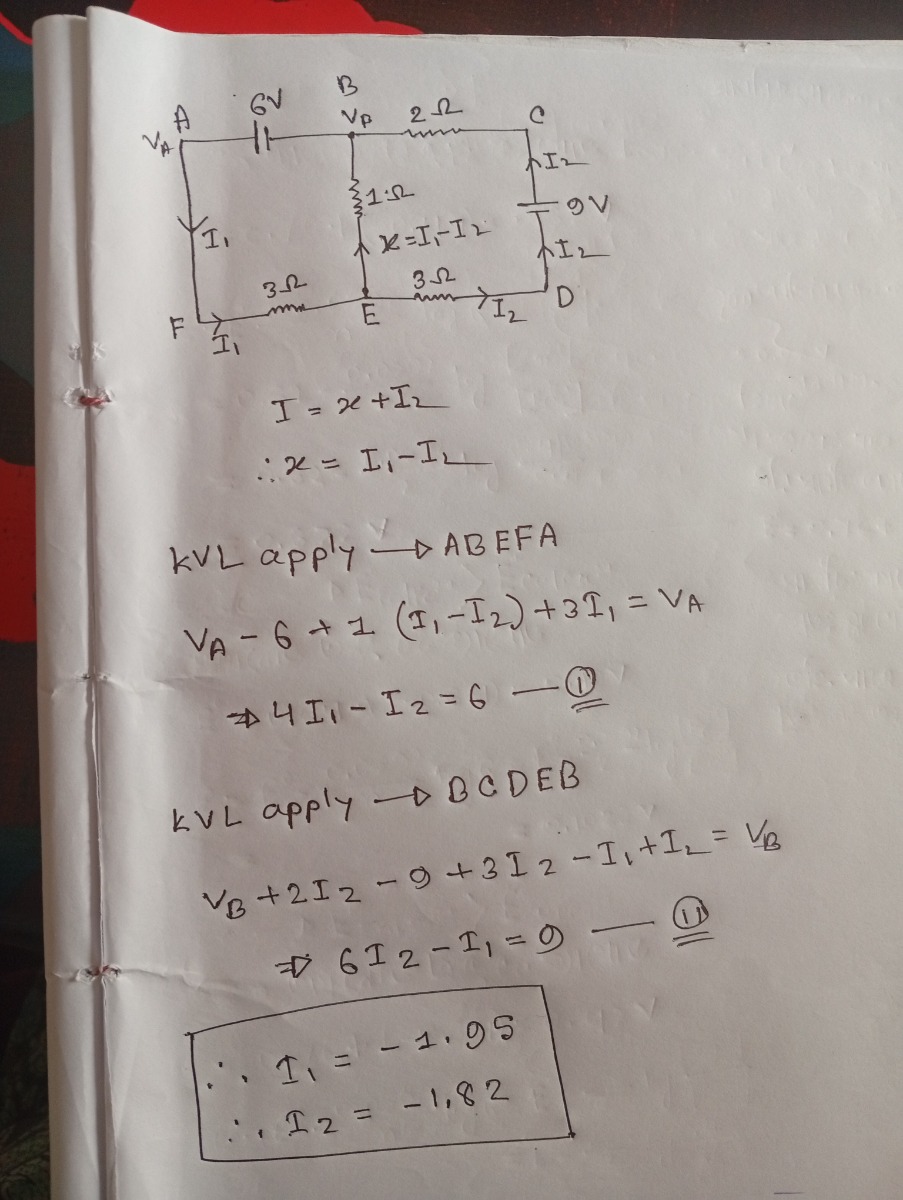 6V
B
A
V_B
2Ω
C
V_A
I₂
1Ω
9V
I₁
x=I₁-I₂
I₂
3Ω
3Ω
F
I₁
E
I₂
D
I = x+I₂
∴ x = I₁-I₂
KVL apply → ABEFA
V_A - 6 + 1 (I₁-I₂)+3I₁ = V_A
⇒ 4I₁ - I₂ = 6 — ①
KVL apply → BCDEB
V_B +2I₂ - 9 +3I₂ - I₁+I₂ = V_B
⇒ 6I₂ - I₁ = 9 — ⑪
∴ I₁ = - 1.95
∴ I₂ = -1.82